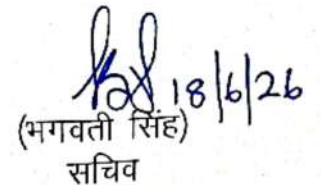 18/6/26
(भगवती सिंह)
सचिव